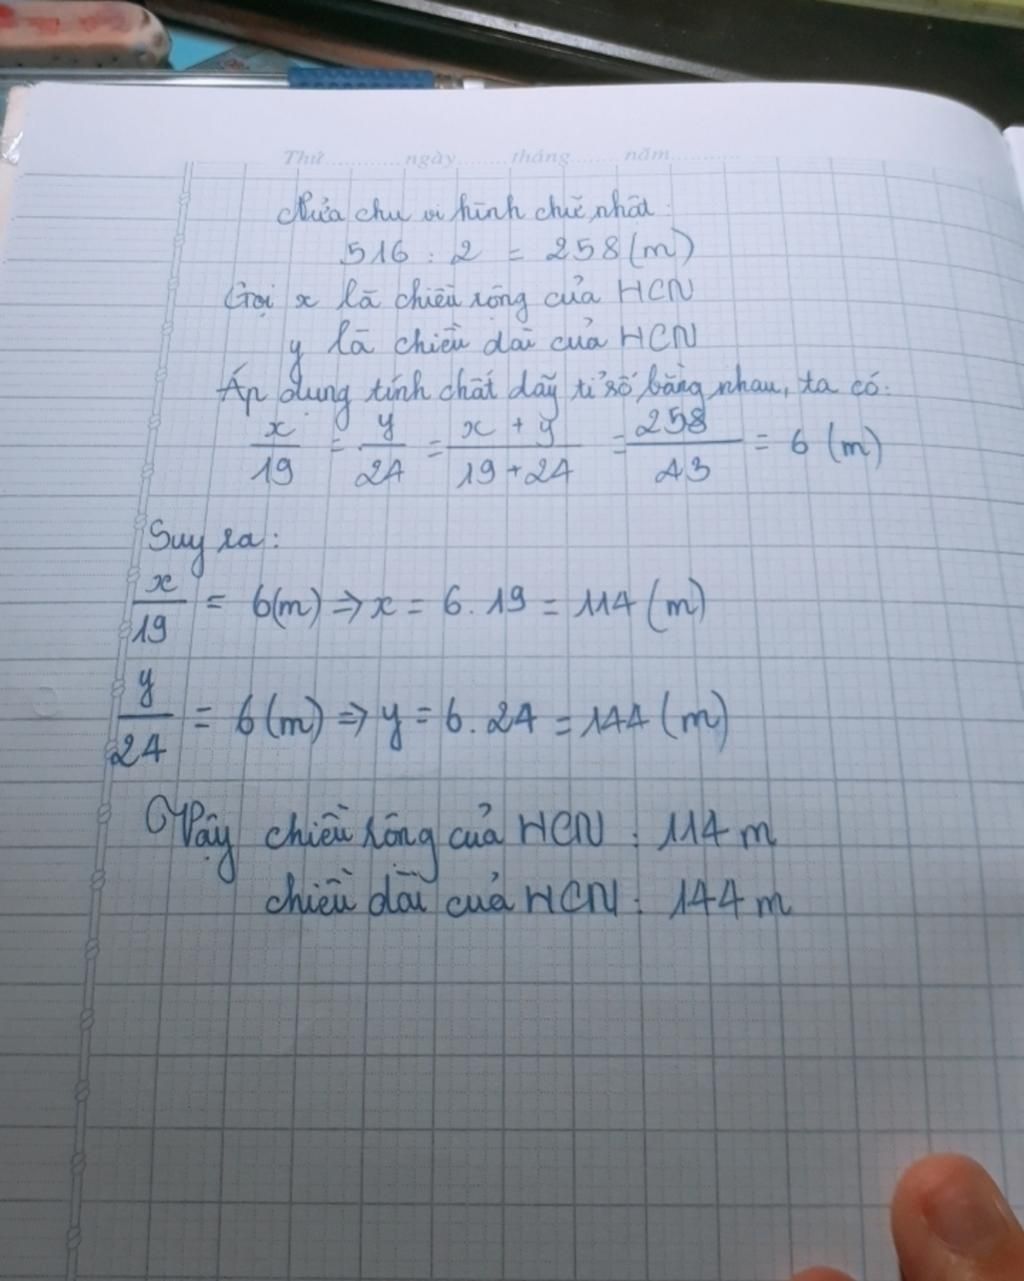 Thứ............ngày.......tháng.......năm..........
Nửa chu vi hình chữ nhật:
516 : 2 = 258 (m)
Gọi x là chiều rộng của HCN
y là chiều dài của HCN
Áp dụng tính chất dãy tỉ số bằng nhau, ta có:
x/19 = y/24 = x + y/19 + 24 = 258/43 = 6 (m)
Suy ra:
x/19 = 6(m) => x = 6 . 19 = 114 (m)
y/24 = 6(m) => y = 6 . 24 = 144 (m)
Vậy chiều rộng của HCN : 114 m
chiều dài của HCN : 144 m